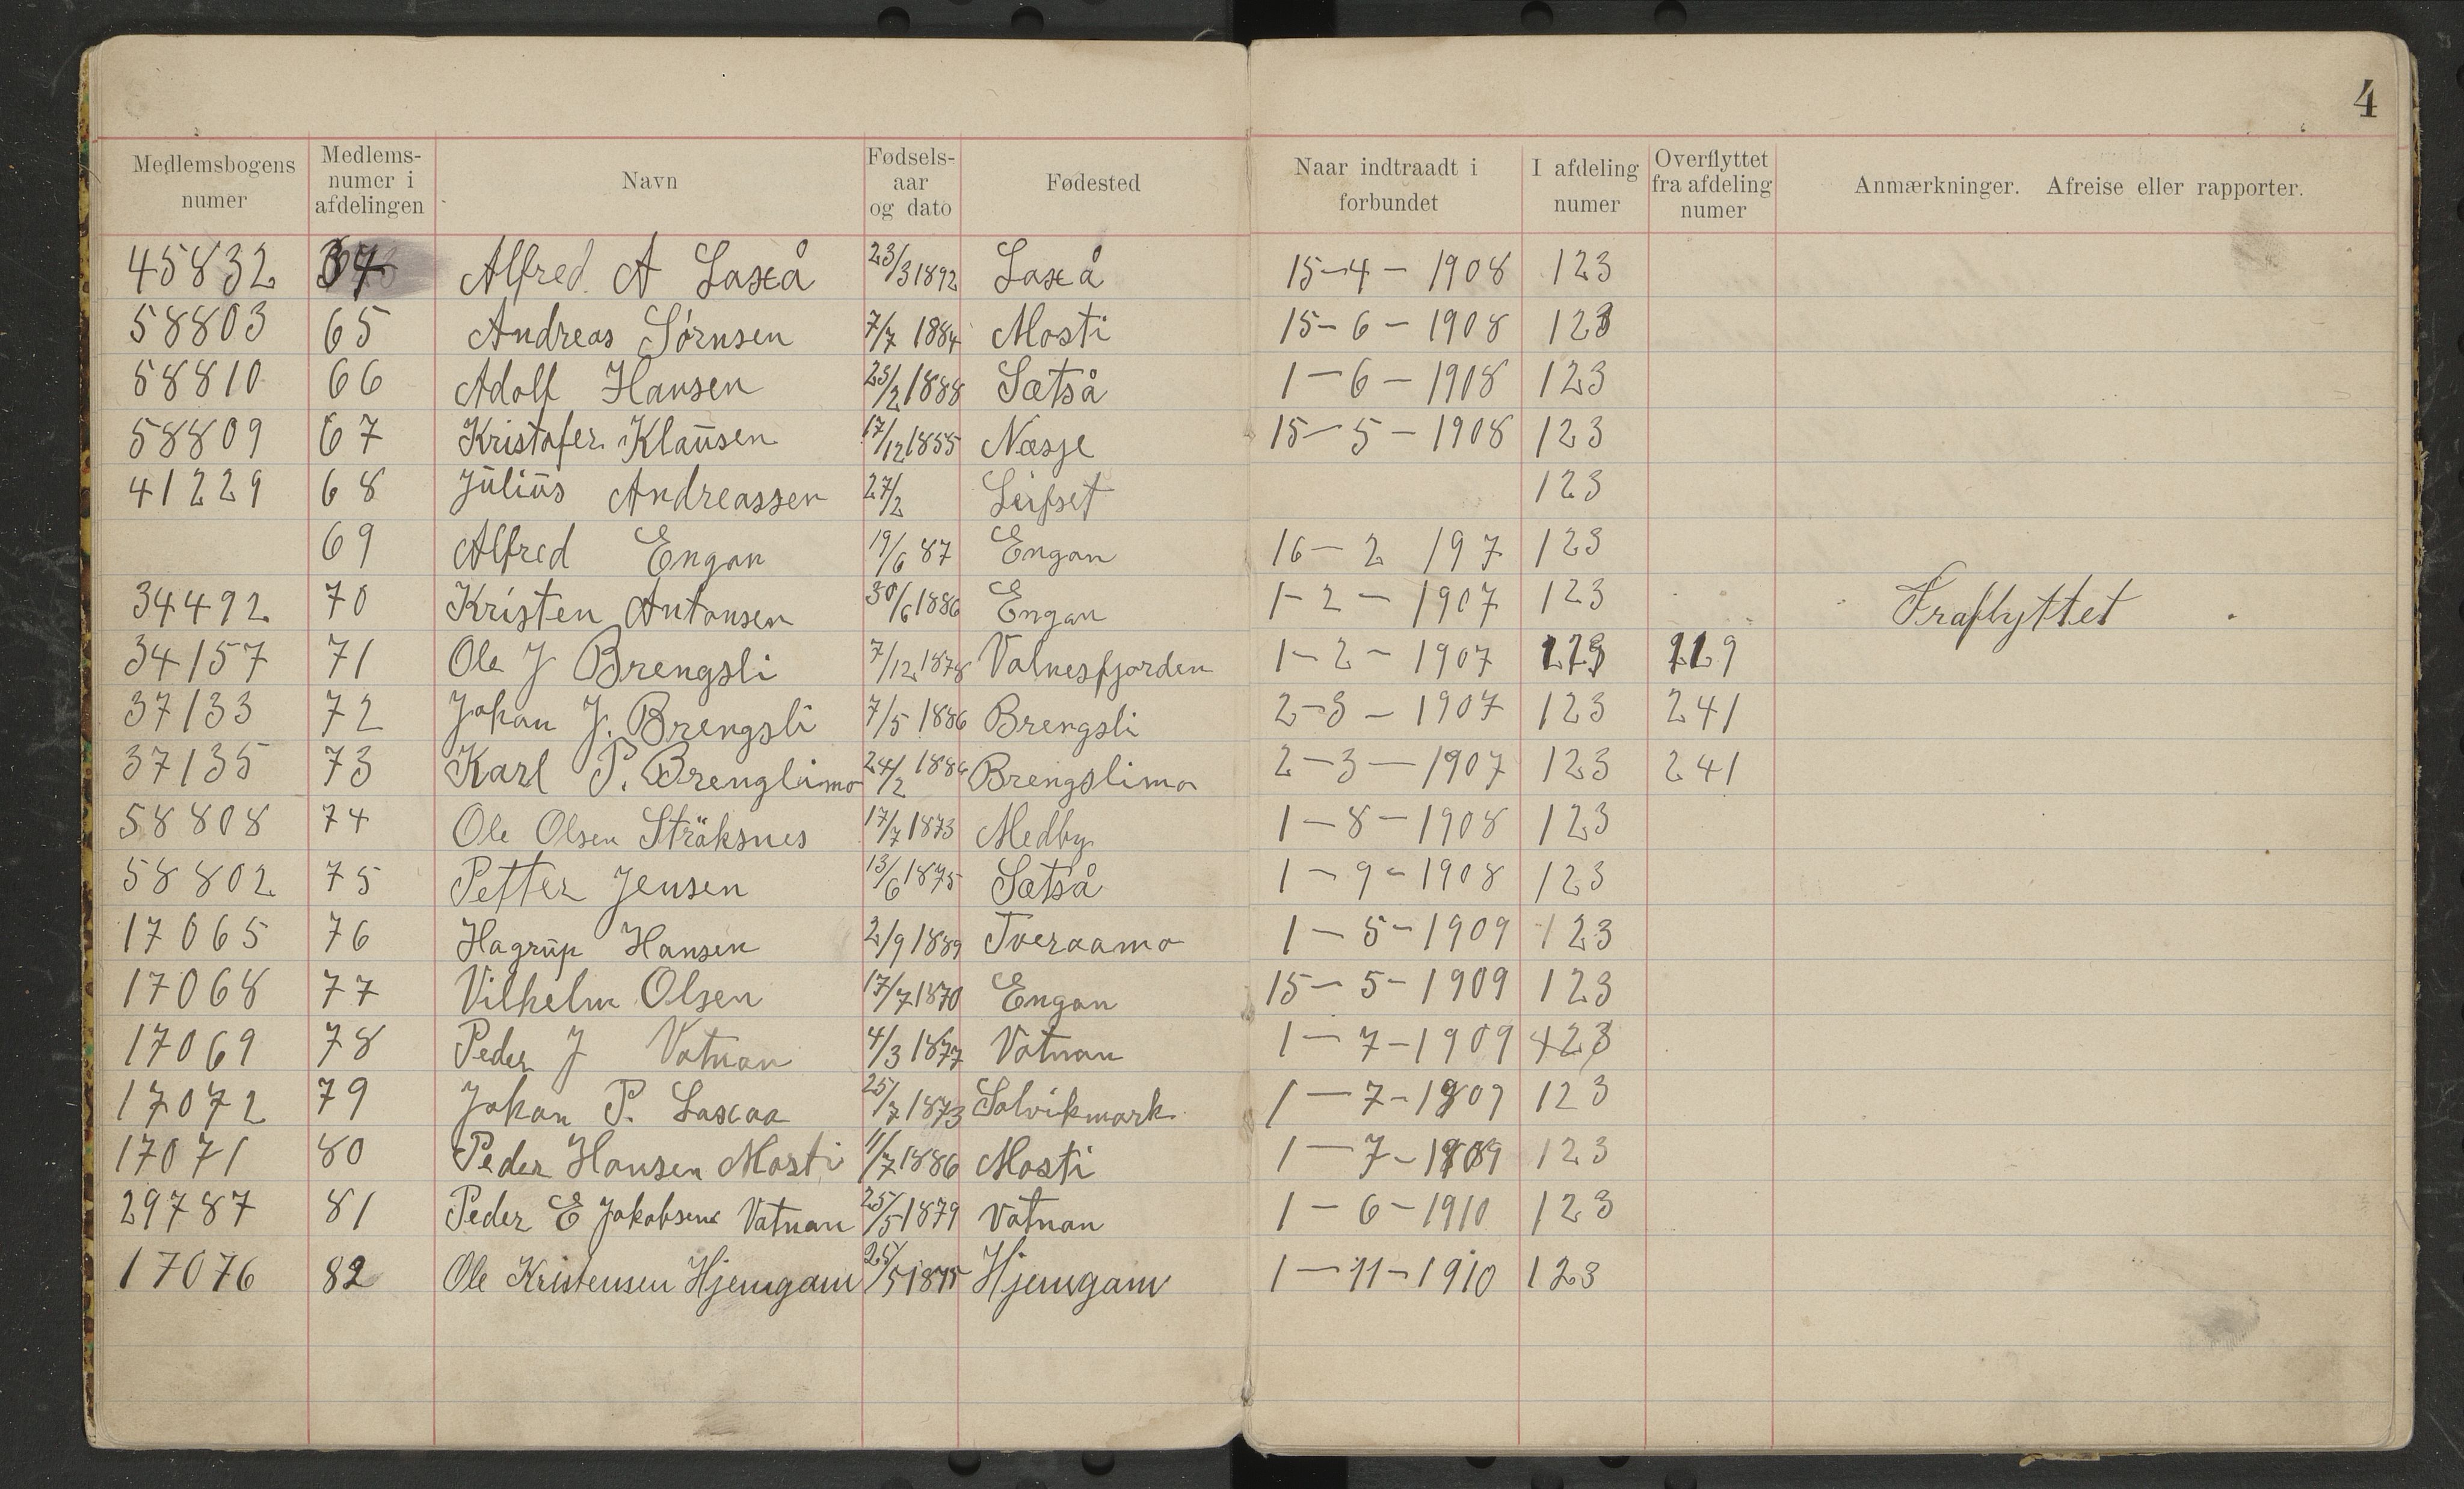 4
Medlemsbogens numer | Medlems-numer i afdelingen | Navn | Fødsels-aar og dato | Fødested | Naar indtraadt i forbundet | I afdeling numer | Overflyttet fra afdeling numer | Anmærkninger. Afreise eller rapporter.
45832 | Alfred A Laxå | 23/3 1892 | Laxå | 15-4-1908 | 123
58803 | 65 | Andreas Sørnsen | 7/7 1884 | Mosti | 15-6-1908 | 123
58810 | 66 | Adolf Hansen | 25/2 1888 | Sætså | 1-6-1908 | 123
58809 | 67 | Kristofer Klaūsen | 17/12 1855 | Næsje | 15-5-1908 | 123
41229 | 68 | Jūliūs Andreassen | 27/2 | 123
69 | Alfred Engan | 19/6 87 | Engan | 16-2 197 | 123
34492 | 70 | Kristen Antonsen | 30/6 1886 | Engan | 1-2-1907 | 123 | Fraflyttet
34157 | 71 | Ole J Brengsli | 7/12 1878 | Valnesfjorden | 1-2-1907 | 123 | 219
37133 | 72 | Johan J. Brengsli | 7/5 1886 | Brengsli | 2-3-1907 | 123 | 241
37135 | 73 | Karl P. Brenglimo | 24/2 1886 | Brengslimo | 2-3-1907 | 123 | 241
58808 | 74 | Ole Olsen Sträksnes | 17/7 1873 | Medby | 1-8-1908 | 123
58802 | 75 | Petter Jensen | 13/6 1875 | Sætså | 1-9-1908 | 123
17065 | 76 | Hagrūp Hansen | 2/9 1889 | Tveraamo | 1-5-1909 | 123
17068 | 77 | Vilhelm Olsen | 17/7 1870 | Engan | 15-5-1909 | 123
17069 | 78 | Peder J Vatnan | 4/3 1877 | Vatnan | 1-7-1909 | 123
17072 | 79 | Johan P. Laxaa | 25/7 1873 | Solvikmark | 1-7-1909 | 123
17071 | 80 | Peder Hansen Mosti | 11/7 1886 | Mosti | 1-7-1909 | 123
29787 | 81 | Peder E Jakobsen Vatnan | 25/5 1879 | Vatnan | 1-6-1910 | 123
17076 | 82 | Ole Kristensen Hjemgam | 25/5 1875 | Hjemgam | 1-11-1910 | 123